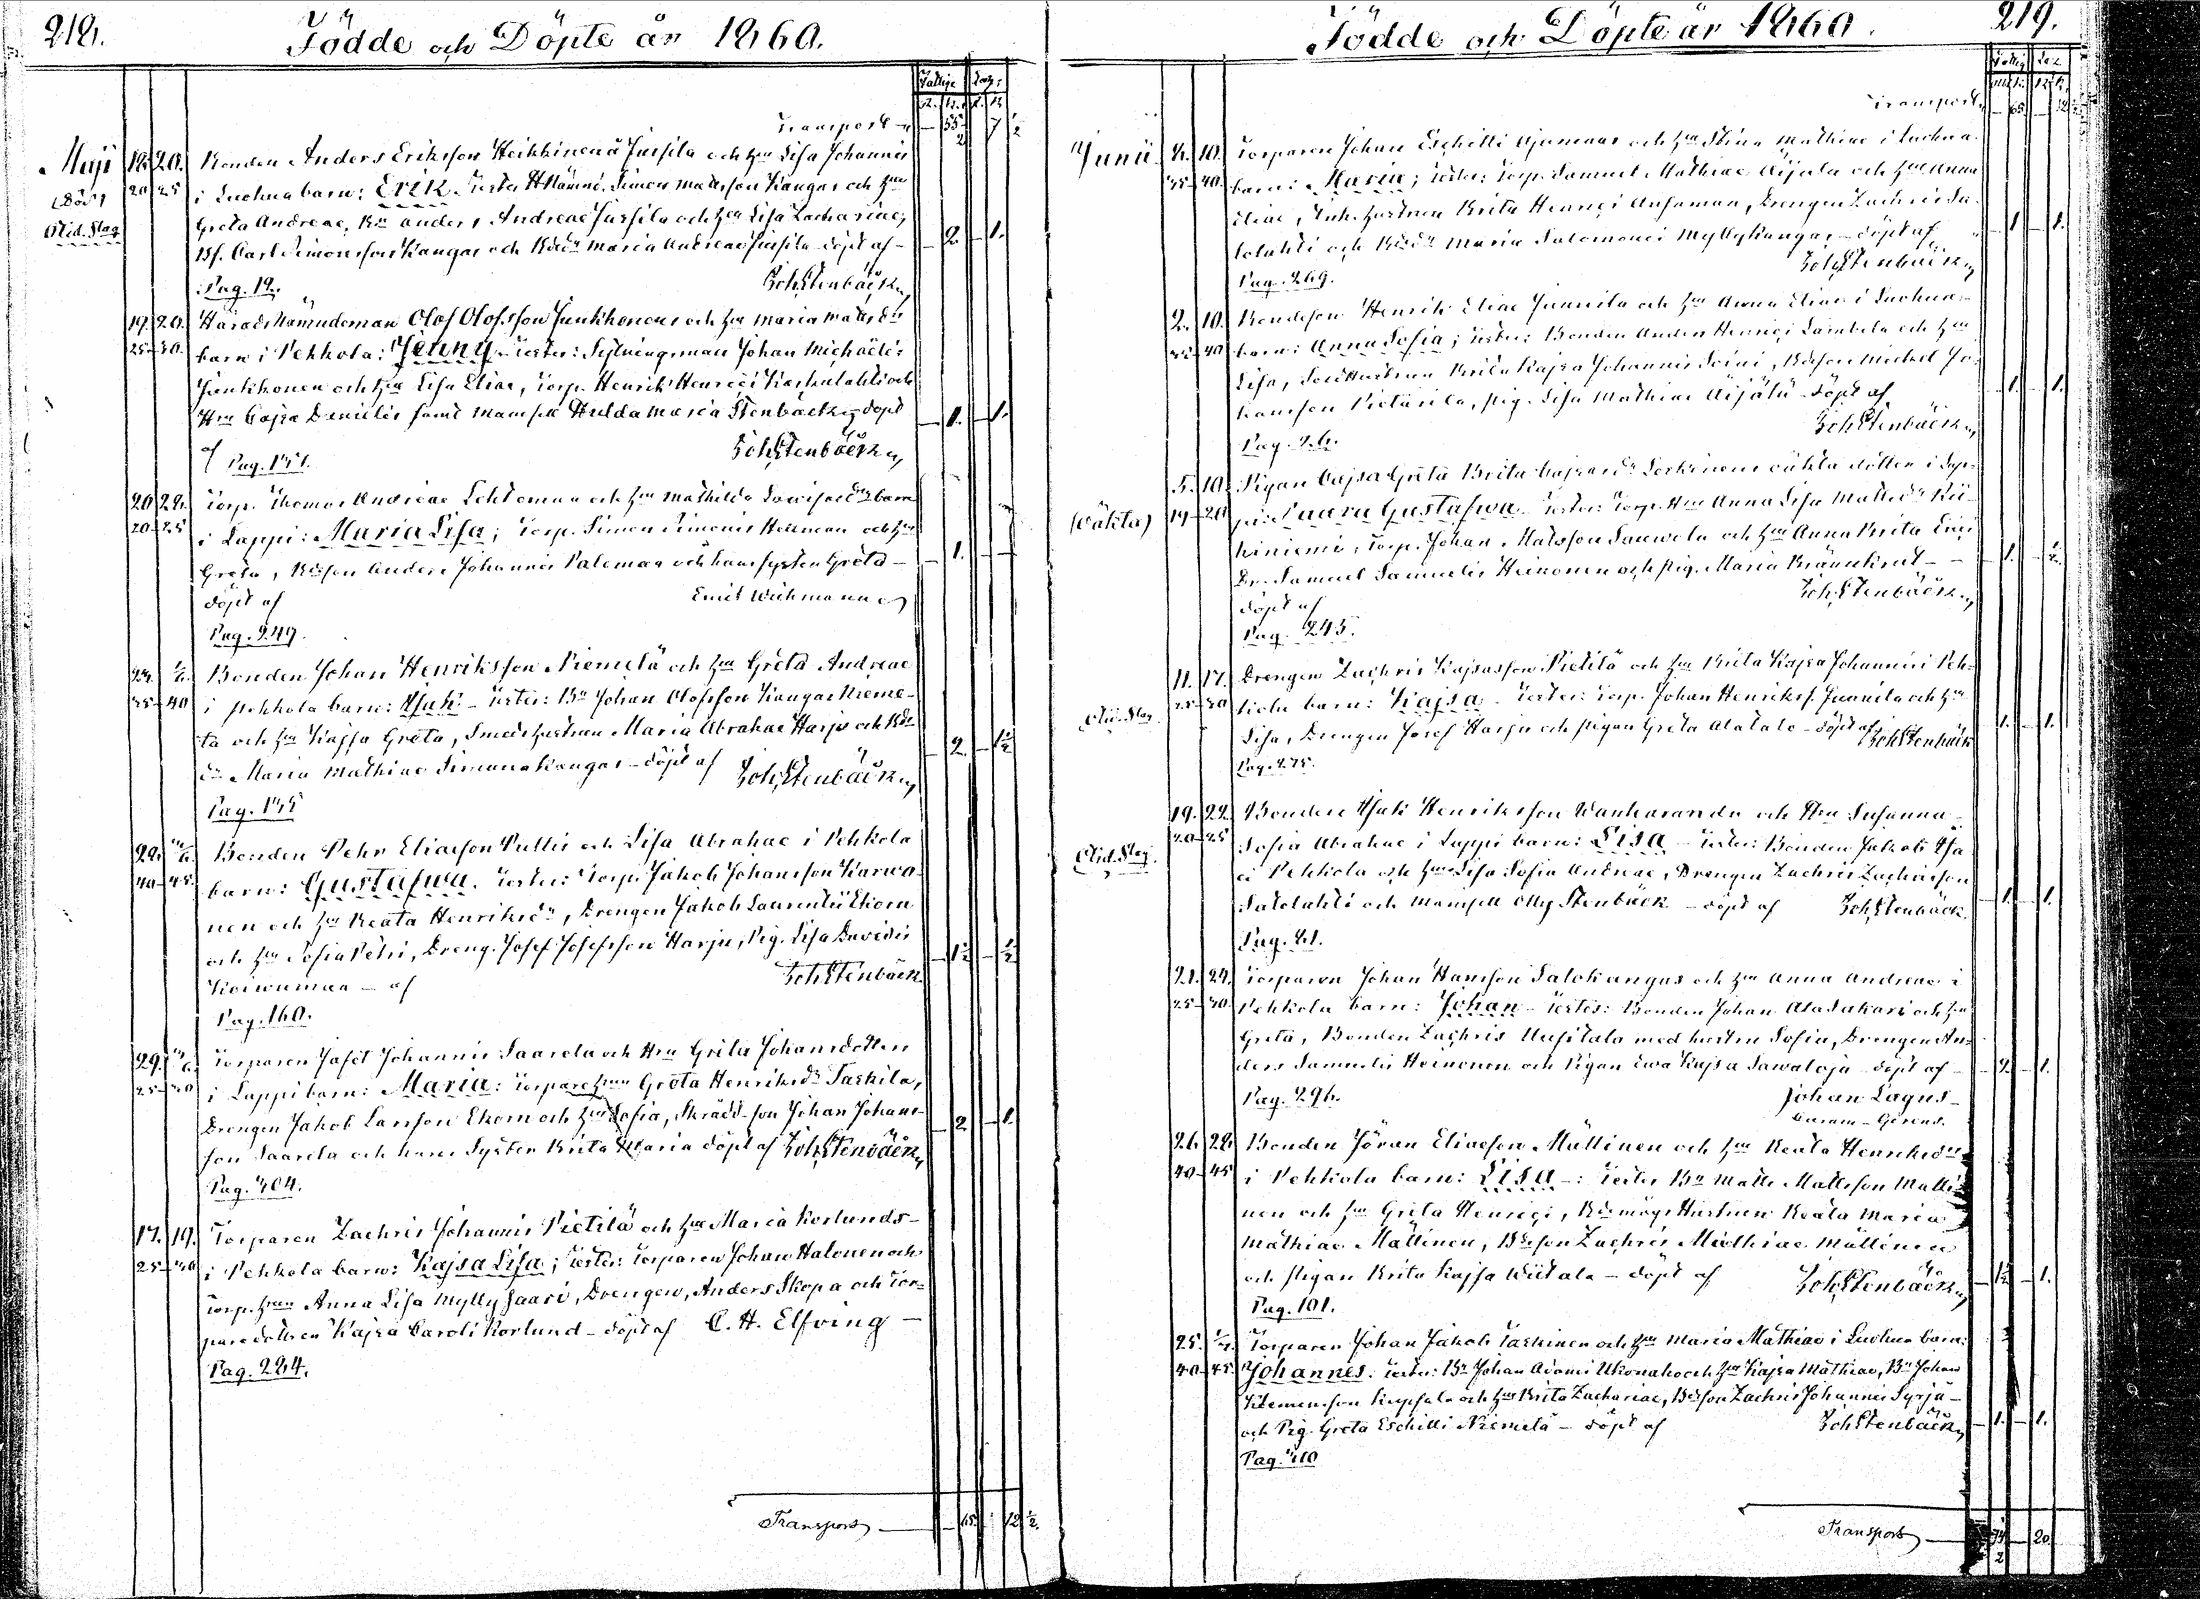 218.
Födde och Döpte år 1860.
Fattige Daga
Transport — 55 2 7 1/2
Maji 18. 20. Bonden Anders Eriksson Heikkinen å Jussila och Hu Lisa Johannis
död 20 25 i Luohua barn: Erik. Testes: Simon Matsson Kangas och Hu
Greta Andreae, Bn Anders Andreae Jussila och Hu Lisa Zachariae,
Bs. Carl Simonsson Kangas och Bdr Maria Andreae Jussila döpt af — 2. — 1.
Pag. 12. Joh Stenbäck
19. 20. Härads Nämndeman Olof Olofsson Junkkonens och Hu Maria Matsdr
25-30. barn i Pehkola: Jenny. Testes: Sytningsman Johan Michaelis
Junkkonen och Hu Lisa Eliae, Torp. Henrik Henrici Koskulahti och
Hu Cajsa Danielis samt Mamsell Hulda Maria Stenbäck döpt — 1. — 1.
af Joh Stenbäck
Pag. 151.
20 28. Torp. Thomas Andreae Lehtomaa och Hu Mathilda barn
20-25 i Lappi: Maria Lisa; Torp. Simon Simonis och Hu
Greta, Bdeson Anders Johannis Palomaa och hans syster Greta — 1. —
döpt af Emil Wichmann
Pag. 249.
Bonden Johan Henriksson Niemelä och Hu Greta Andreae
35-40 i Pehkola barn: Isak. Testes: Bn Johan Olofsson Kangas Nieme-
lä och Hu Kajsa Greta, Smeds hustrun Maria Abrahae Harju och Bde
dr Maria Mathiae Simunakangas döpt af — 2. — 1 1/2
Joh Stenbäck
Pag. 155
22. Bonden Pehr Eliasson Pullis och Lisa Abrahae i Pehkola
40-45. barn: Gustafwa. Testes: Torp. Jakob Johansson Karwo-
nen och Hu Beata Henriksdr, Drengen Jakob Laurentii Ekorn
och Hu Sofia Petri, Dreng. Josef Josefsson Harju, Pig. Lisa Davidis — 1 1/2 — 1/2
Koiwumaa — af Joh Stenbäck
Pag. 160.
29. Torparen Jafet Johannis Saarela och Hu Greta Johansdotter
25-30 i Lappi barn: Maria: Torpare Hun Greta Henriksdr Taskila,
Drengen Jakob Larsson Ekorn och Hu Sofia, Skrädd. son Johan Johans- — 2 — 1.
son Saarela och hans Syster Brita Maria döpt af Joh Stenbäck
Pag. 304.
17. 19. Torparen Zachris Johannis Pietilä och Hu Maria Korlunds-
25-30 i Pehkola barn: Kajsa Lisa; Testes: Torparen Johan Halonen och
Torp. Hun Anna Lisa Myllysaari, Drengen, Anders Skopa och Tor-
paredottren Kajsa Caroli Korlund — döpt af C. H. Elfving —
Pag. 284.
Transport — 65. 12 1/2.
Födde och Döpte år 1860.
219.
Transport — 65 12 1/2
Junii 4. 10. Torparen Johan Eschilli Ojamaas och Hu Stina Mathiae i Luohua
35-40. barn: Maria; Testes: Torp. Samuel Mathiae Äijälä och Hu Anna
Eliae, Enk. hustrun Brita Henrici Ansamaa, Drengen Zachris Sa-
lolahti och Bdedr Maria Salomonis Myllykangas — döpt af — 1 — 1.
Joh Stenbäck
Pag. 269.
2. 10. Bondeson Henrik Eliae Junnila och Hu Anna Eliae i Luohua
barn: Anna Sofia; Testes: Bonden Anders Henrici Lambela och Hu
Lisa, Sold Hustrun Brita Kajsa Johannis Soini, Bdeson Michel Jo-
hansson Pietarila, pig. Lisa Mathiae Äijälä döpt af — 1. — 1.
Joh Stenbäck
Pag. 26.
5. 10. Pigan Cajsa Greta Brita Cajsasdr oäkta dotter i Lap-
(oäkta) 19-20 pi: Laura Gustafwa. Testes: Torp. Hu Anna Lisa Matsdr Kii-
kiniemi, Torp. Johan Matsson Sauwola och Hu Anna Brita
Dr. Samuel Samuelis Heinonen och pig. Maria Brännkrut — 1. — 1/2
döpt af Joh Stenbäck
Pag. 245.
11. 17. Drengen Zachris Kajsasson Pietilä och Hu Brita Kajsa Johannis i Peh-
25-30 kola barn: Kajsa. Testes: Torp. Johan Henrikss. Junnila och Hu
Lisa, Drengen Josef Harju och pigan Greta Alatalo — döpt af Joh Stenbäck 1. — 1.
Pag. 275.
19. 22. Bonden Isak Henriksson Wanharanda och Hu Susanna
20-25 Sofia Abrahae i Lappi barn: Lisa. Testes: Bonden Jakob Isa
ci Pehkola och Hu Lisa Sofia Andreae, Drengen Zachris Zachrisson
Salolahti och Mamsell Olly Stenbäck — döpt af Joh Stenbäck — 1. — 1.
Pag. 41.
21. 24. Torparen Johan Hansson Salokangas och Hu Anna Andreae i
25-30. Pehkola barn: Johan. Testes: Bonden Johan Alasakari och Hu
Greta, Bonden Zachris Uusitalo med hustru Sofia, Drengen An-
ders Samuelis Heinonen och Pigan Ewa Kajsa Sawaloja döpt af — 2. — 1.
Pag. 296. Johan Lagus
26. 28. Bonden Jöran Eliaeson Mällinen och Hu Beata Henriksdr
40-45 i Pehkola barn: Lisa —: Testes Bn Matts Mattsson Mälli-
nen och Hu Greta Henrici, Bdemågs Hustrun Beata Maria
Mathiae Mällinen, Bdeson Zachris Mathiae Mällinen
och pigan Brita Kajsa Wiitala — döpt af Joh Stenbäck — 1 1/2 — 1.
Pag. 101.
25. Torparen Johan Jakob Taskinen och Hu Maria Mathiae i Luohua barn:
40-45 Johannes. Testes: Bn Johan Adami Ukonaho och Hu Kajsa Mathiae, Bn Johan
Klemensson Keppola och Hu Brita Zachariae, Bdeson Zachris Johannis Syrjä
och Pig. Greta Eschilli Niemelä — döpt af Joh Stenbäck — 1. — 1.
Pag. 310
Transport — 74 2 — 20